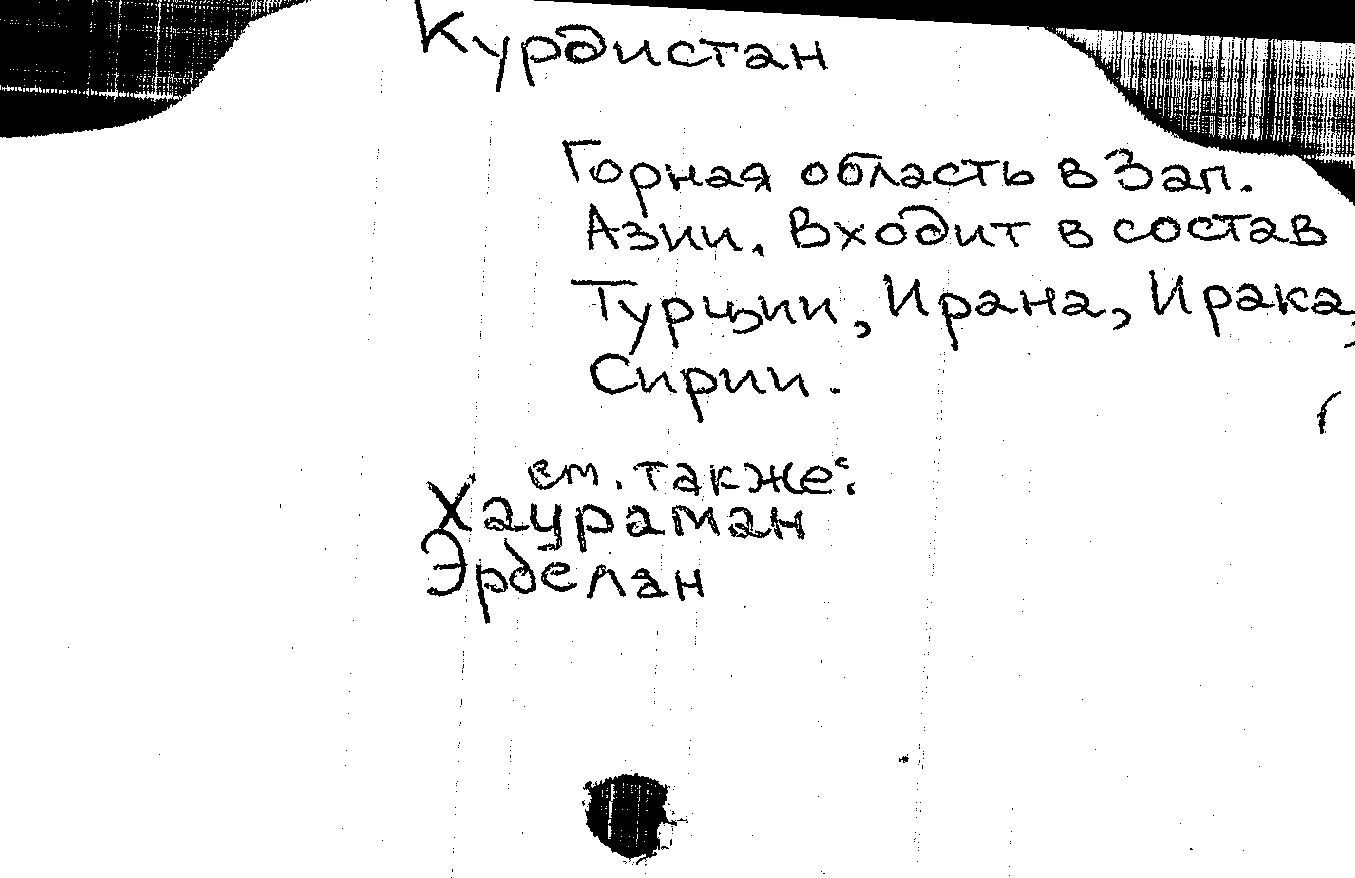 Курдистан
Горная область в Зап.
Азии. Входит в состав
Турции, Ирана, Ирака,
Сирии.
см. также:
Хаураман
Эрделан